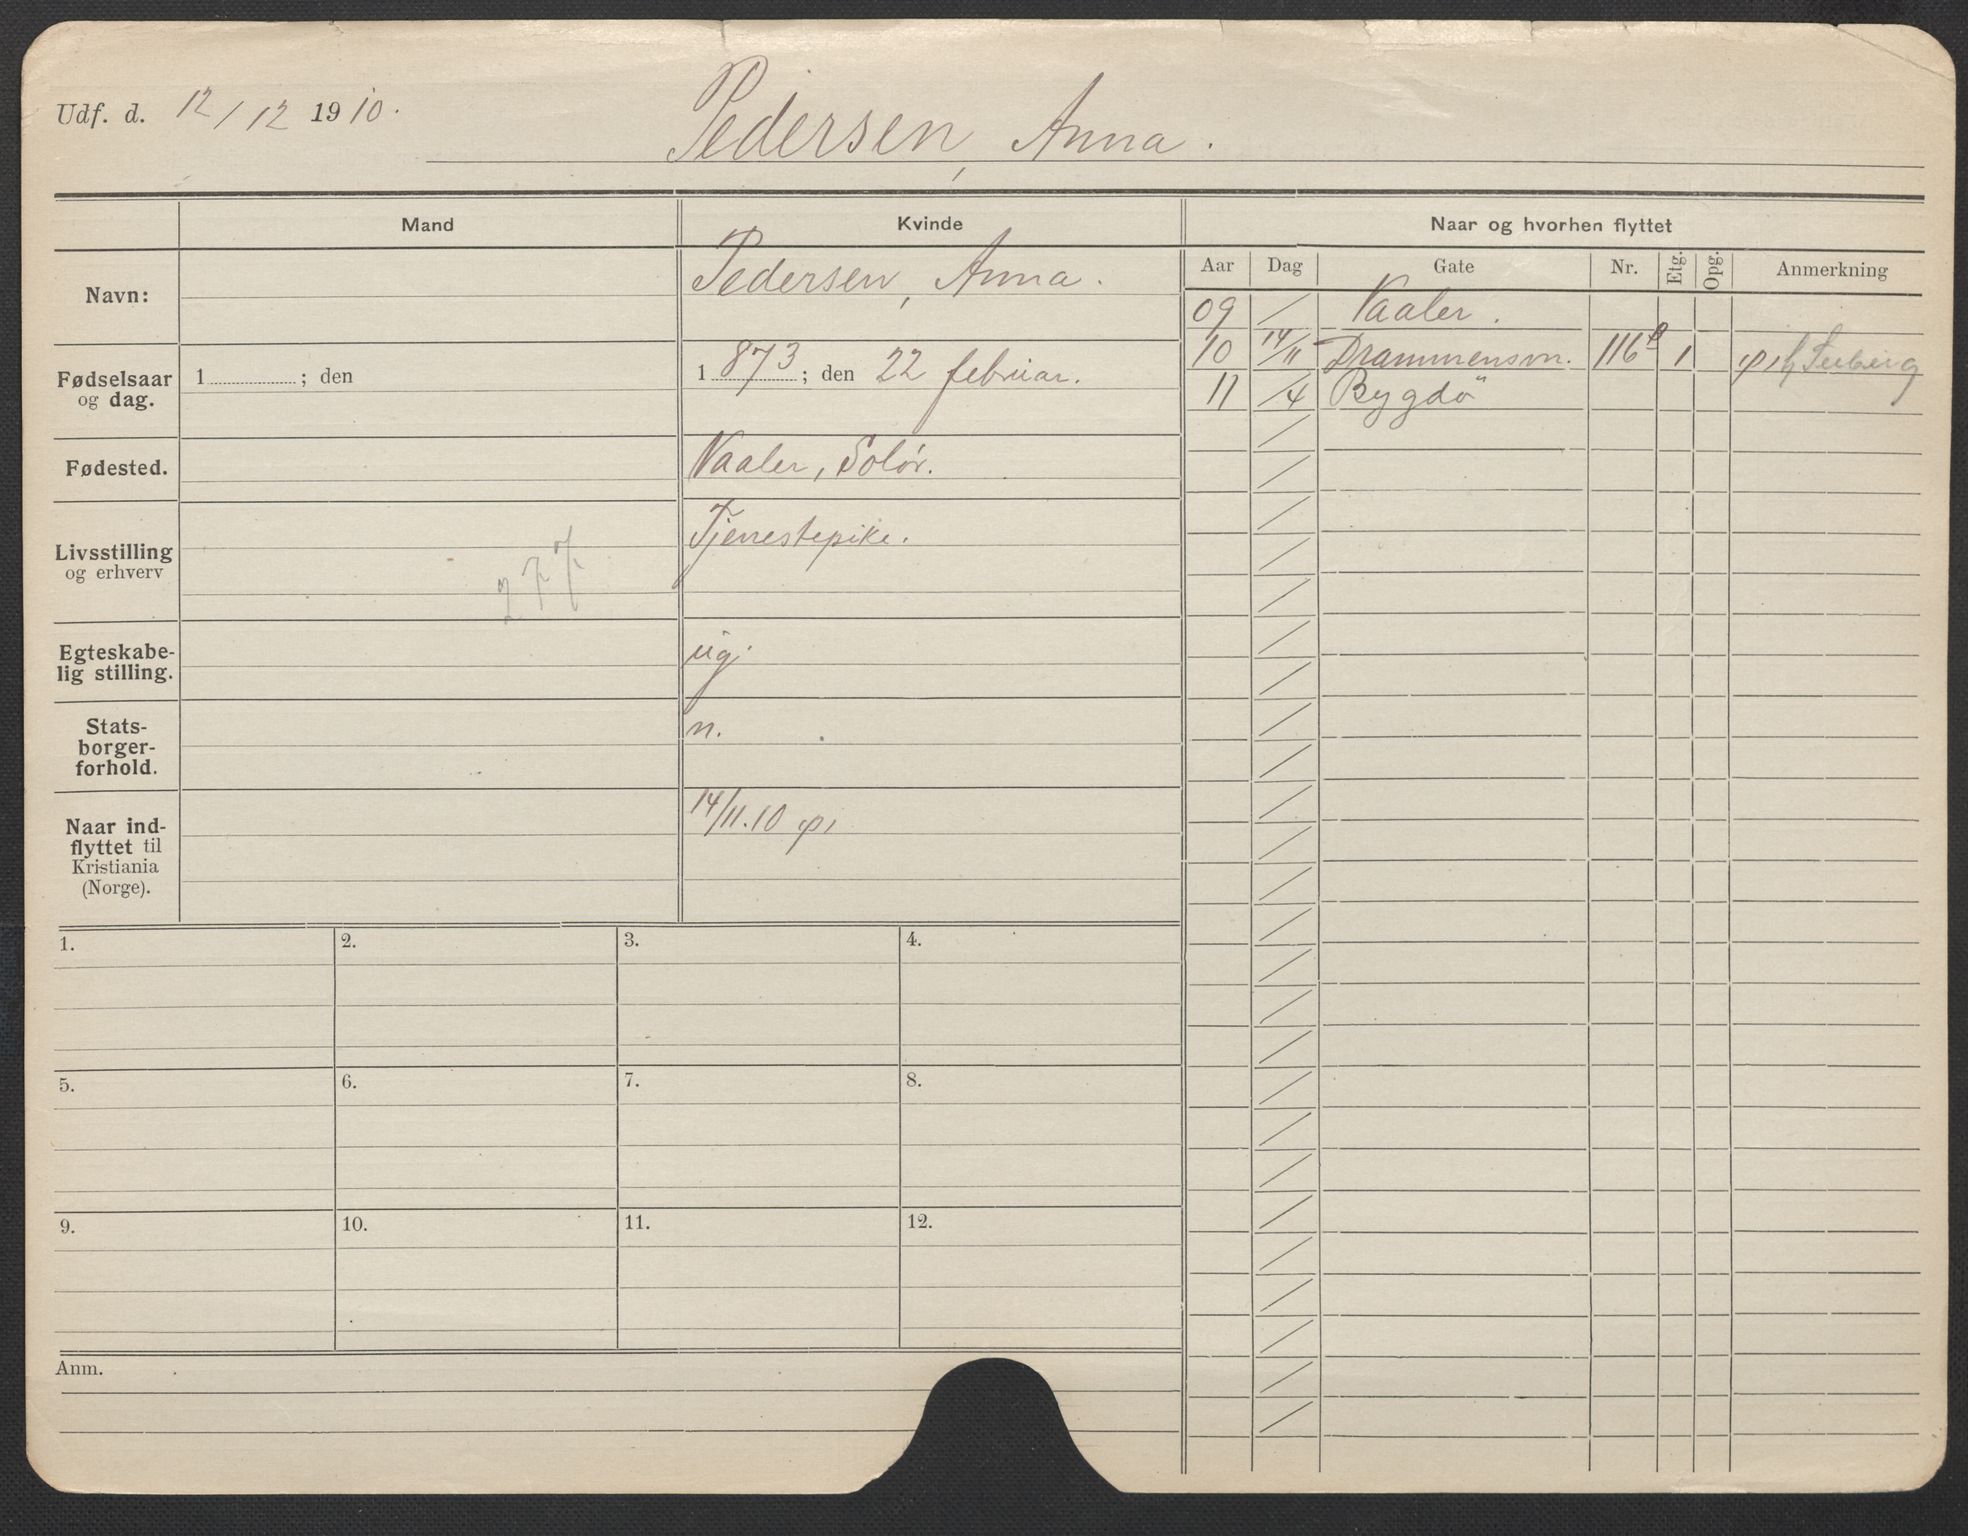 Udf. d. 12/12 1910.
Pedersen, Anna.
Mand
Kvinde
Naar og hvorhen flyttet
Aar Dag Gate Nr. Etg. Opg. Anmerkning
Navn:
Pedersen, Anna.
09 / Vaaler.
10 14/11 Drammensvn. 116 1
11 /4 Bygdö
Fødselsaar
og dag.
1 ; den
1873; den 22 februar.
Fødested.
Vaaler, Solör.
Livsstilling
og erhverv
277
Tjenestepike.
Egteskabe-
lig stilling.
ug.
Stats-
borger-
forhold.
n.
Naar ind-
flyttet til
Kristiania
(Norge).
14/11.10
1. 2. 3. 4.
5. 6. 7. 8.
9. 10. 11. 12.
Anm.